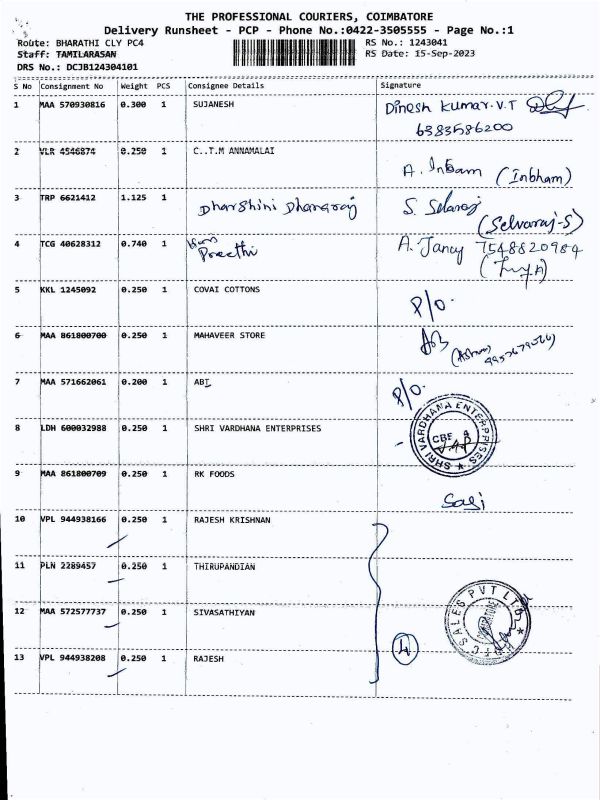 THE PROFESSIONAL COURIERS, COIMBATORE
Delivery Runsheet - PCP - Phone No.:0422-3505555 - Page No.:1
Route: BHARATHI CLY PC4 RS No.: 1243041
Staff: TAMILARASAN RS Date: 15-Sep-2023
DRS No.: DCJB124304101
S No Consignment No Weight PCS Consignee Details Signature
1 MAA 570930816 0.300 1 SUJANESH Dinesh Kumar.V.T
6383586200
2 VLR 4546874 0.250 1 C..T.M ANNAMALAI
A. Inbam (Inbham)
3 TRP 6621412 1.125 1 Dharshini Dhanaraj S. Selvaraj
(Selvaraj-S)
4 TCG 40628312 0.740 1 Preethi A. Jancy 7548820984
5 KKL 1245092 0.250 1 COVAI COTTONS
P/O.
6 MAA 861800700 0.250 1 MAHAVEER STORE
7 MAA 571662061 0.200 1 ABI P/O.
8 LDH 600032988 0.250 1 SHRI VARDHANA ENTERPRISES
SHRI VARDHANA ENTERPRISES. CBE
9 MAA 861800709 0.250 1 RK FOODS
Sasi
10 VPL 944938166 0.250 1 RAJESH KRISHNAN
11 PLN 2289457 0.250 1 THIRUPANDIAN
12 MAA 572577737 0.250 1 SIVASATHIYAN
SALES PVT LTD
4
13 VPL 944938208 0.250 1 RAJESH